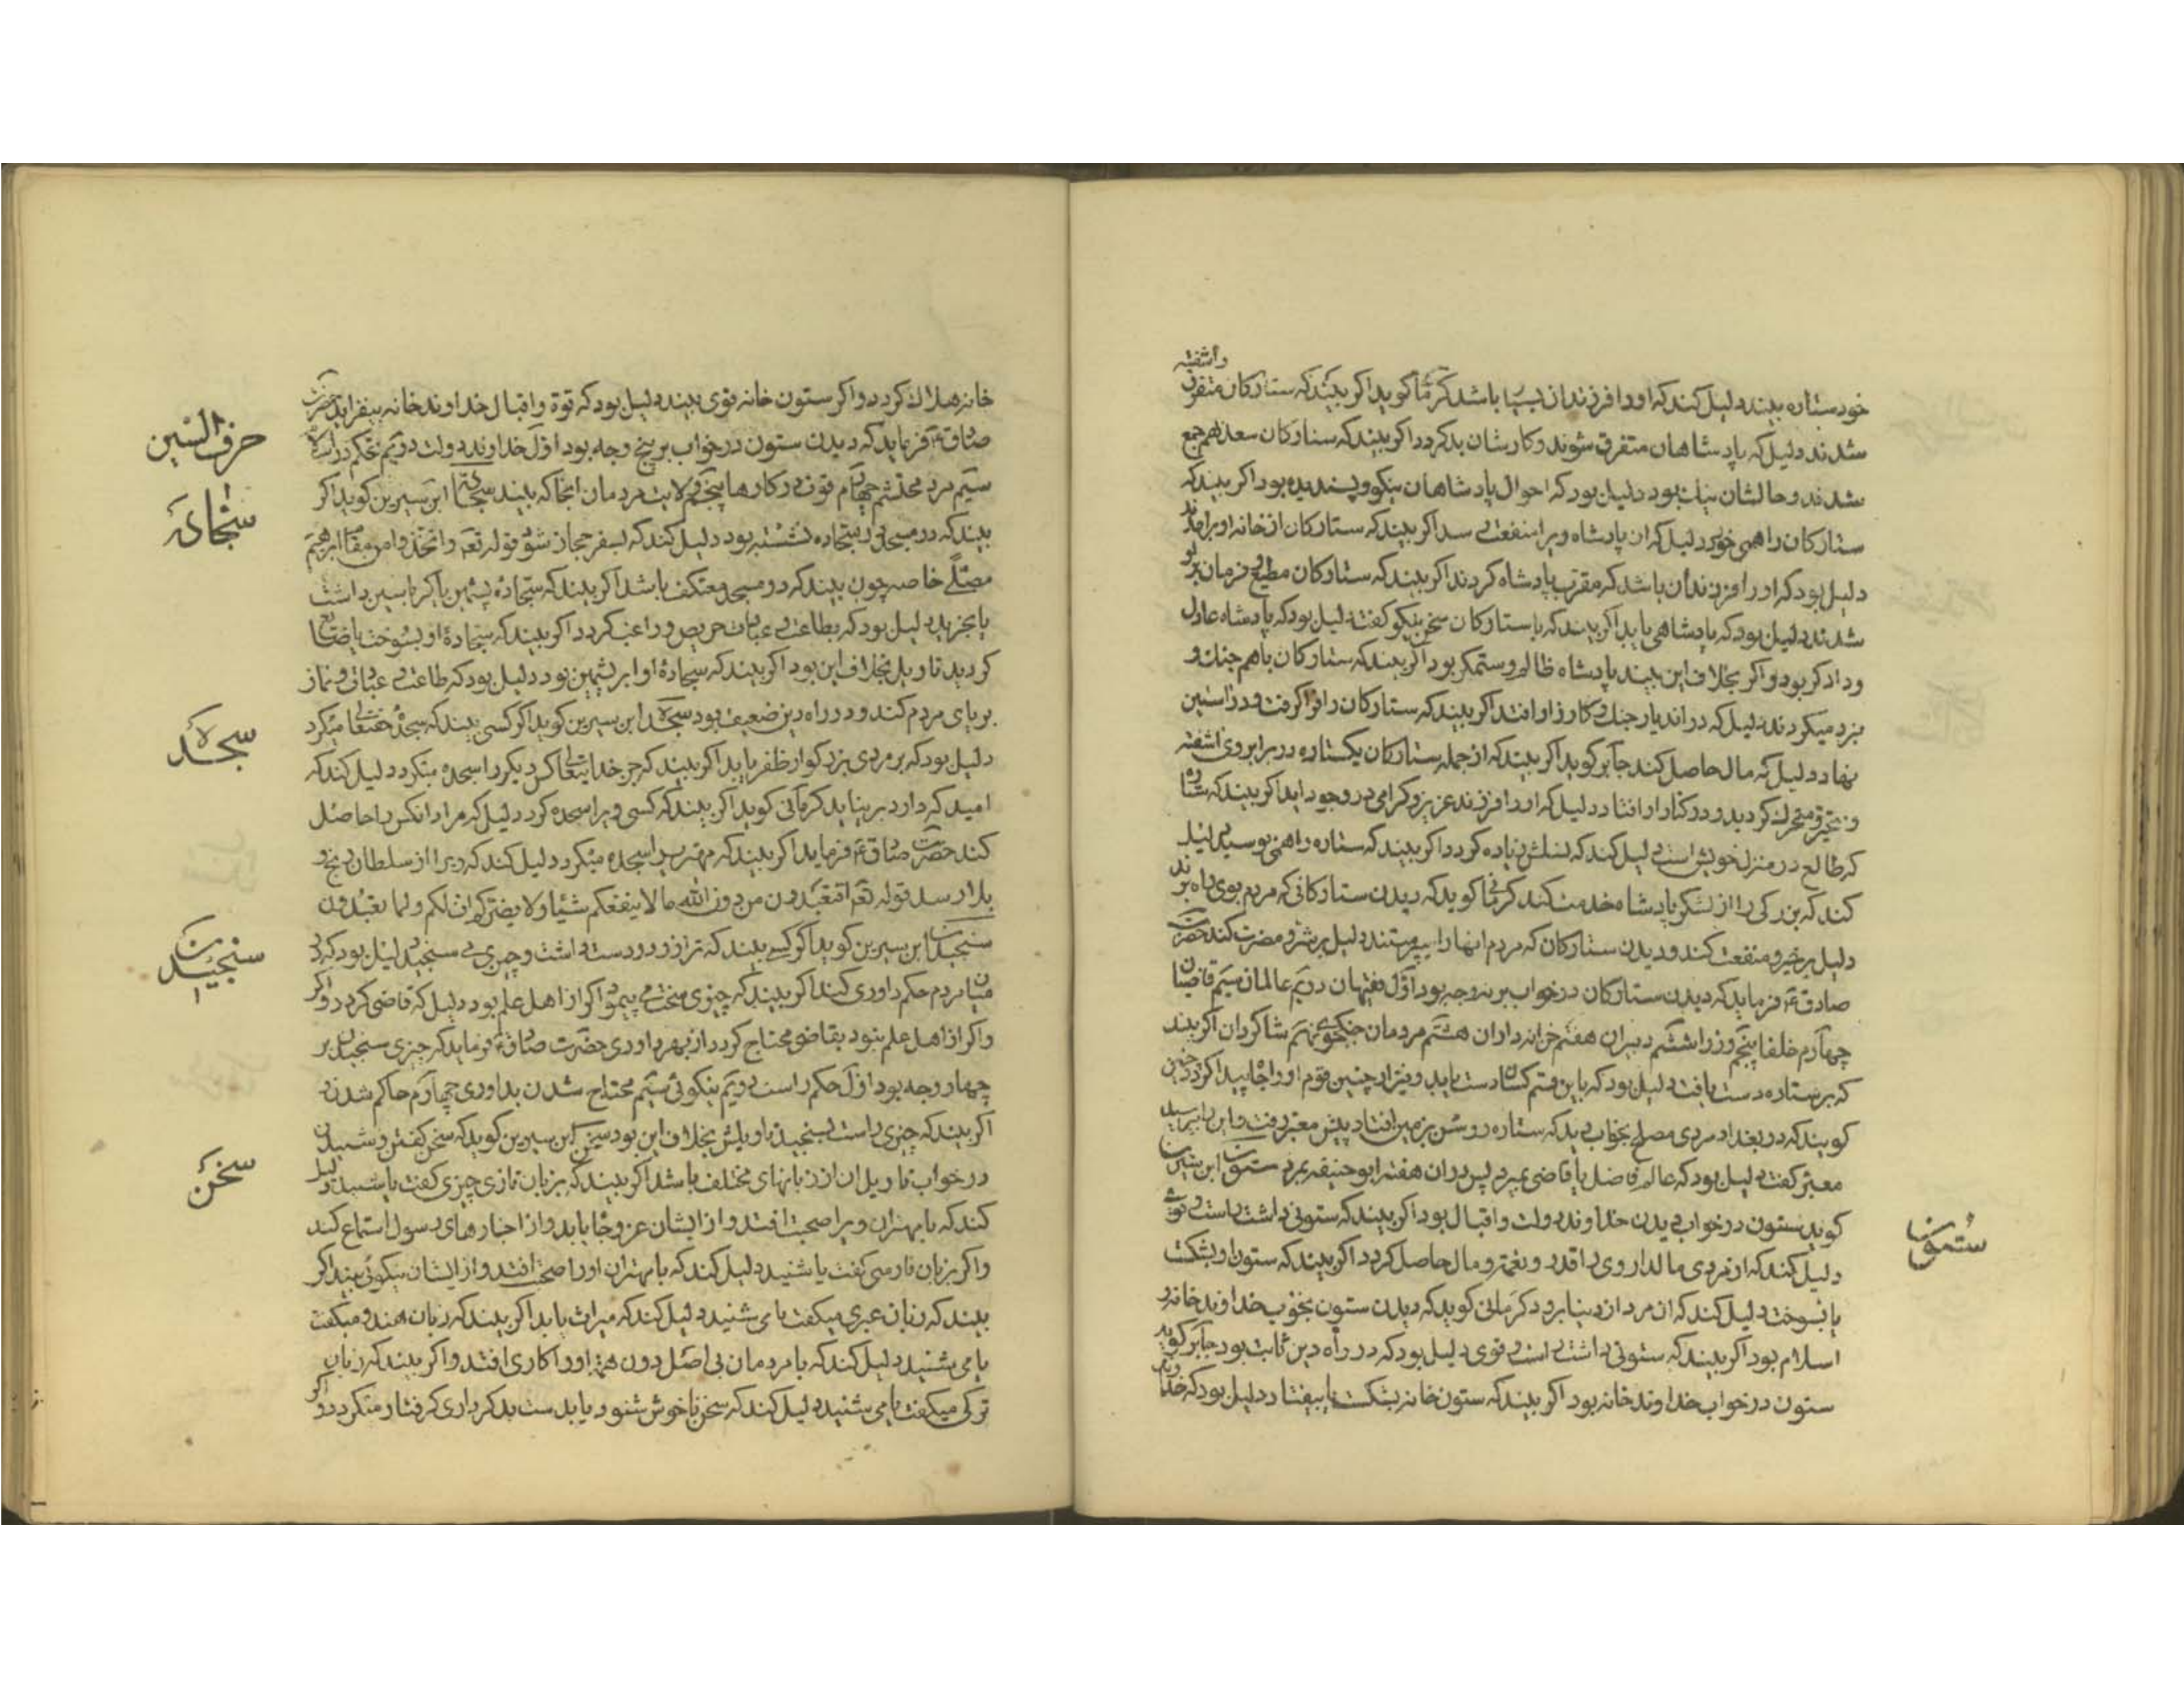 خود ستاره بیند دلیل کند که او را فرزندان بسیا باشد کرما کوید اکر بیند که ستارکان متفرق
واشفته
شدند دلیل که پادشاهان متفرق شوند و کارشان بد کردد اکر بیند که ستارکان سعد بهم جمع
شدند و حالشان نیک بود دلیل بود که احوال پادشاهان نیکو و پسندیده بود اکر بیند که
ستارکان را همی خورد دلیل که ان پادشاه ویرا منفعت رسد اکر بیند که ستارکان از خانه او برامدند
دلیل بود که او را فرزندان باشد که مقرب پادشاه کردند اکر بیند که ستارکان مطیع و فرمان بر او
شدند دلیل بود که پادشاهی یابد اکر بیند که با ستارکان سخن نیکو کفت دلیل بود که پادشاه عادل
و دادکر بود و اکر بخلاف این بیند پادشاه ظالم و ستمکر بود اکر بیند که ستارکان باهم جنک و
نبرد میکردند دلیل که در اندیار جنک و کارزار افتد اکر بیند که ستارکان را فرا کرفت و در استین
نهاد دلیل که مال حاصل کند جابر کوید اکر بیند که از جمله ستارکان یکستاره در برابر وی اشفته
و متحیر و متحرک کردید و در کنار او افتاد دلیل که او را فرزند عزیز و کرامی در وجود اید اکر بیند که ستاره
که طالع در منزل خویش است دلیل کند که نسلش زیاده کردد اکر بیند که ستاره را همی بوسید دلیل
کند که بزرکی را از لشکر پادشاه خدمت کند کرما کوید که دیدن ستارکانی که مردم بوی راه برند
دلیل بر خیر و منفعت کند و دیدن ستارکان که مردم انها را بپرستند دلیل بر شر و مضرت کند حضرت
صادق ع فرماید که دیدن ستارکان در خواب بر نه وجه بود اول فقیهان دویم عالمان سیم قاضیان
چهارم خلفا پنجم وزرا ششم دبیران هفتم خزانه داران هشتم مردمان جنکجوی نهم شاکردان اکر بیند
که بر ستاره دست یافت دلیل بود که باین قسم کسان دست یابد و نیز از چنین قوم او را جاه پیدا کردد چنین
کویند که در بغداد مردی مصلح بخواب دید که ستاره روشن بر زمین افتاد پیش معبر رفت و این را پرسید
معبر کفت دلیل بود که عالم فاضل یا قاضی بمیرد پس در ان هفته ابو حنیفه بمرد ستون ابن سیرین
کوید ستون در خواب دیدن خداوند دولت و اقبال بود اکر بیند که ستونی داشت راست و قوی
دلیل کند که از مردی مالدار وی را قدر و نعمت و مال حاصل کردد اکر بیند که ستون او بشکست
یا بسوخت دلیل کند که ان مرد از دینا برود کرمانی کوید که دیدن ستون بخواب خداوند خانه و
اسلام بود اکر بیند که ستونی داشت راست و قوی دلیل بود که در راه دین ثابت بود جابر کوید
ستون در خواب خداوند خانه بود اکر بیند که ستون خانه بشکست یا بیفتاد دلیل بود که خداوند
ستون
خانه هلاک کردد و اکر ستون خانه قوی بیند دلیل بود که قوة و اقبال خداوند خانه بیفزاید حضرت
صادق ع فرماید که دیدن ستون در خواب بر پنج وجه بود اول خداوند دولت دویم
سیم مرد محتشم چهارم قوت در کارها پنجم ولایت مردمان انجا که بیند سجاده ابن سیرین کوید اکر
بیند که در مسجد بر سجاده نشسته بود دلیل کند که بسفر حجاز شود قوله تعم واتخذوا من مقام ابرهیم
مصلی خاصه چون بیند که در مسجد معتکف باشد اکر بیند که سجاده پشمین یا کرباسین داشت
دلیل بود که بطاعت و عبادت حریص و راغب کردد اکر بیند که سجاده او بسوخت یا ضایع
کردید تاویل بخلاف این بود اکر بیند که سجاده او ابریشمین بود دلیل بود که طاعت و عبادت و نماز
بریای مردم کند و در راه دین ضعیف بود سجده ابن سیرین کوید اکر کسی بیند که سجده حقتعالی میکرد
دلیل بود که بر مردی بزرکوار ظفر یابد اکر بیند که جز خدایتعالی کس دیکر را سجده میکرد دلیل کند که
امید که دارد برنیاید کرمانی کوید اکر بیند که کسی ویرا سجده کرد دلیل که مراد انکس را حاصل
کند حضرت صادق ع فرماید اکر بیند که مهتری را سجده میکرد دلیل کند که ویرا از سلطان رنج و
بلا رسد قوله تعم افتعبدون من دون الله مالا ینفعکم شیئا ولا یضرکم اف لکم ولما تعبدون
سنجیدن ابن سیرین کوید اکر کسی بیند که ترازو در دست داشت و چیزی می سنجید دلیل بود که در
میان مردم حکم و داوری کند اکر بیند که چیزی سخت می پیمود اکر از اهل علم بود دلیل که قاضی کردد و اکر
و اکر از اهل علم نبود بقاضی محتاج کردد از بهر داوری حضرت صادق ع فرماید که چیزی سنجیدن بر
چهار وجه بود اول حکم راست دویم نیکوئی سیم محتاج شدن بداوری چهارم حاکم شدن
اکر بیند که چیزی راست بسنجید تاویلش بخلاف این بود سخن ابن سیرین کوید که سخن کفتن و شنیدن
در خواب تاویل ان از زبانهای مختلف باشد اکر بیند که بزبان تازی چیزی کفت یا شنید دلیل
کند که با مهتران ویرا صحبت افتد و از ایشان عز و جاه یابد و از اخبارهای رسول استماع کند
و اکر بزبان فارسی کفت یا شنید دلیل کند که با مهتران او را صحبت افتد و از ایشان نیکوئی بیند اکر
بیند که زبان عبری میکفت یا می شنید دلیل کند که میراث یابد اکر بیند که زبان هندو میکفت
یا می شنید دلیل کند که با مردمان بی اصل دون همت او را کاری افتد و اکر بیند که زبان
ترکی میکفت یا می شنید دلیل کند که سخن ناخوش شنود
حرف السین
سجاده
سجده
سنجیدن
سخن